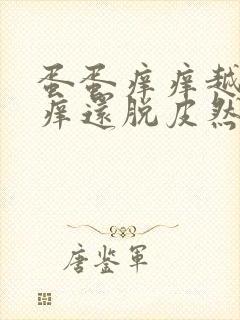 蛋蛋痒痒越
痒還脱皮然
唐鉴軍